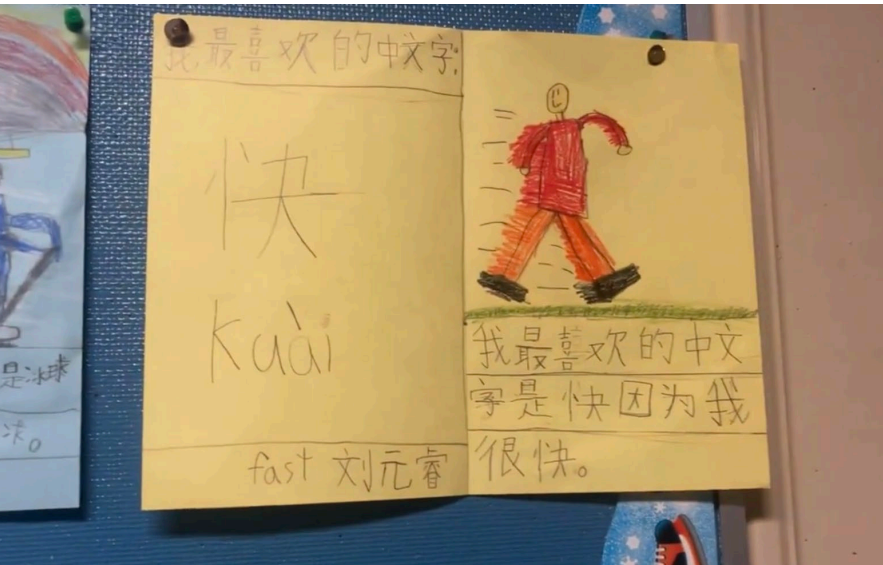 我最喜欢的中文字:
快
kuài
fast 刘元睿
我最喜欢的中文
字是快因为我
很快。
是冰球
球。